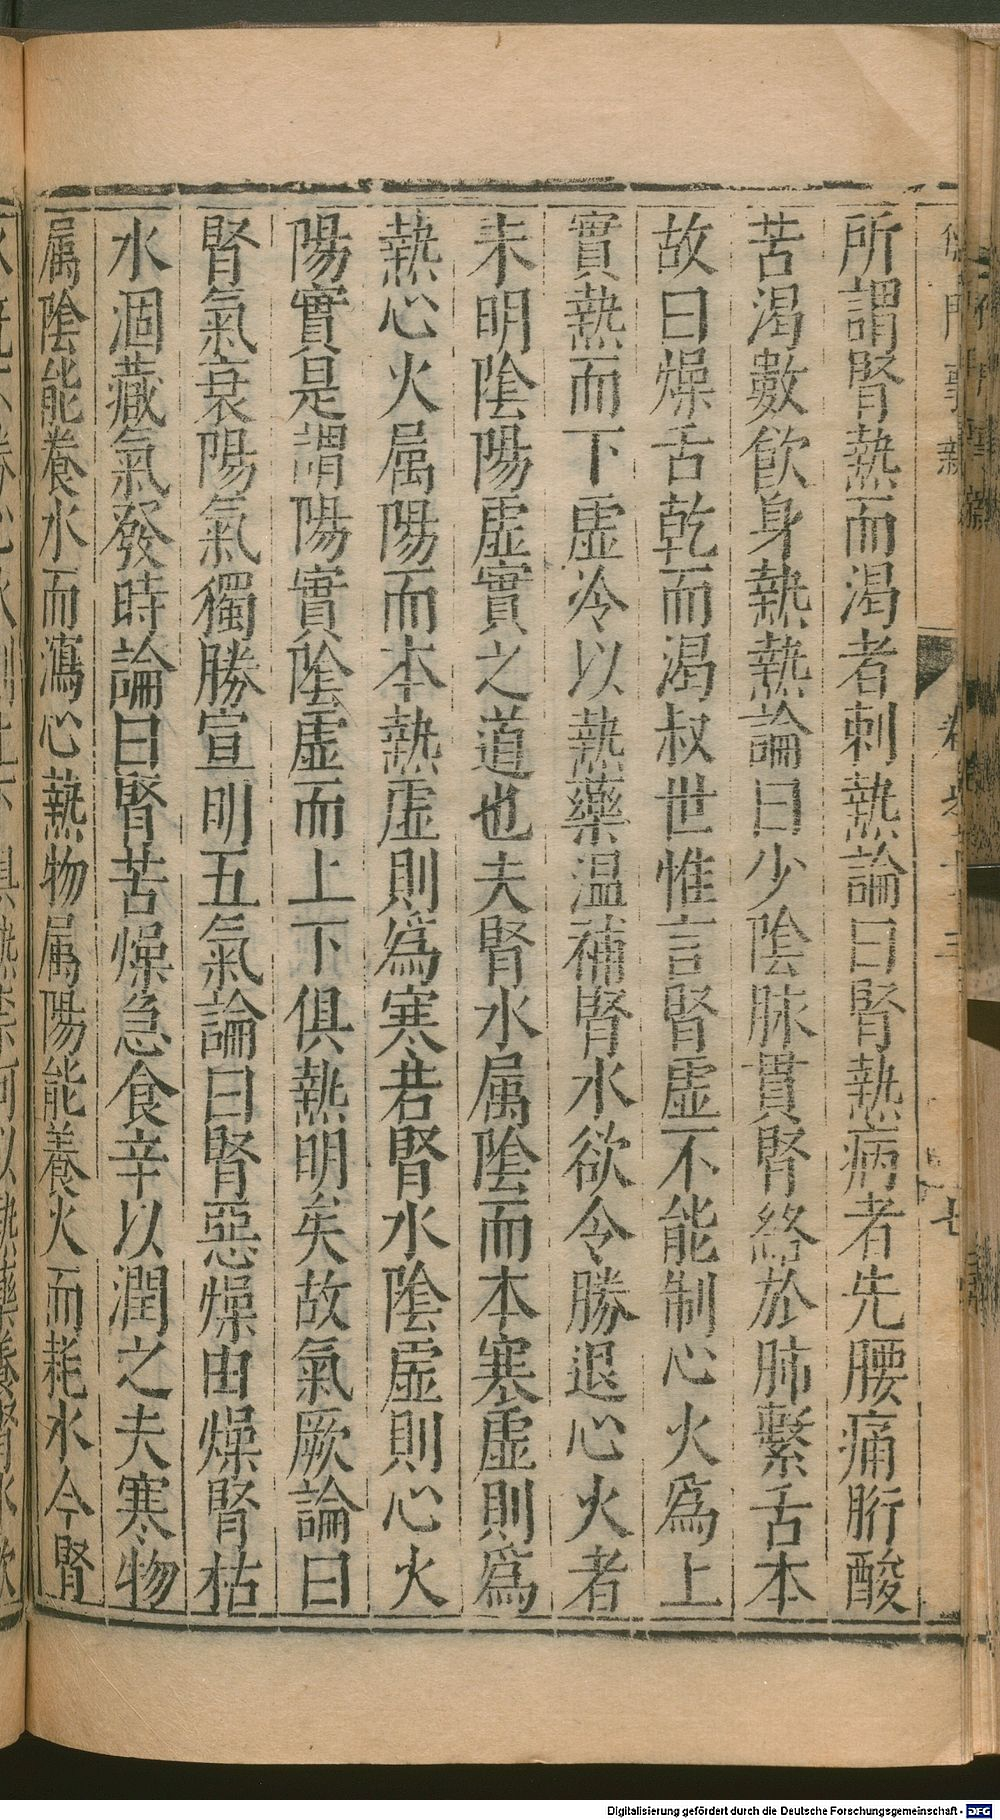 所謂腎熱而渴者刺熱論曰腎熱病者先腰痛胻酸
苦渴數飲身熱熱論曰少陰脉貫腎絡於肺繫舌本
故曰燥舌乾而渴叔世惟言腎虛不能制心火爲上
實熱而下虛冷以熱藥温補腎水欲令勝退心火者
未明陰陽虛實之道也夫腎水属陰而本寒虛則爲
熱心火属陽而本熱虛則爲寒若腎水陰虛則心火
陽實是謂陽實陰虛而上下俱熱明矣故氣厥論曰
腎氣衰陽氣獨勝宣明五氣論曰腎惡燥由燥腎枯
水涸藏氣發時論曰腎苦燥急食辛以潤之夫寒物
属陰能養水而瀉心熱物属陽能養火而耗水今腎
Digitalisierung gefördert durch die Deutsche Forschungsgemeinschaft - DFG